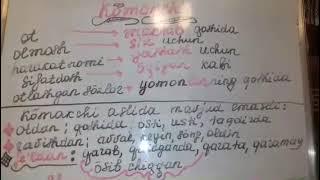 Ko'makchi
ot → maktab qoshida
olmosh → siz uchun
harakat nomi → yashash uchun
Sifatdosh → o'qigan kabi
otlashgan so'zlar → yomonning qoshida
Ko'makchi aslida mavjud emasdi:
otdan; qoshida, osti, usti, tagida
ravishdan; avval, keyin, so'ng, oldin
fe'ldan; qarab, qaraganda, qarata, qaramay
osib chiqqan